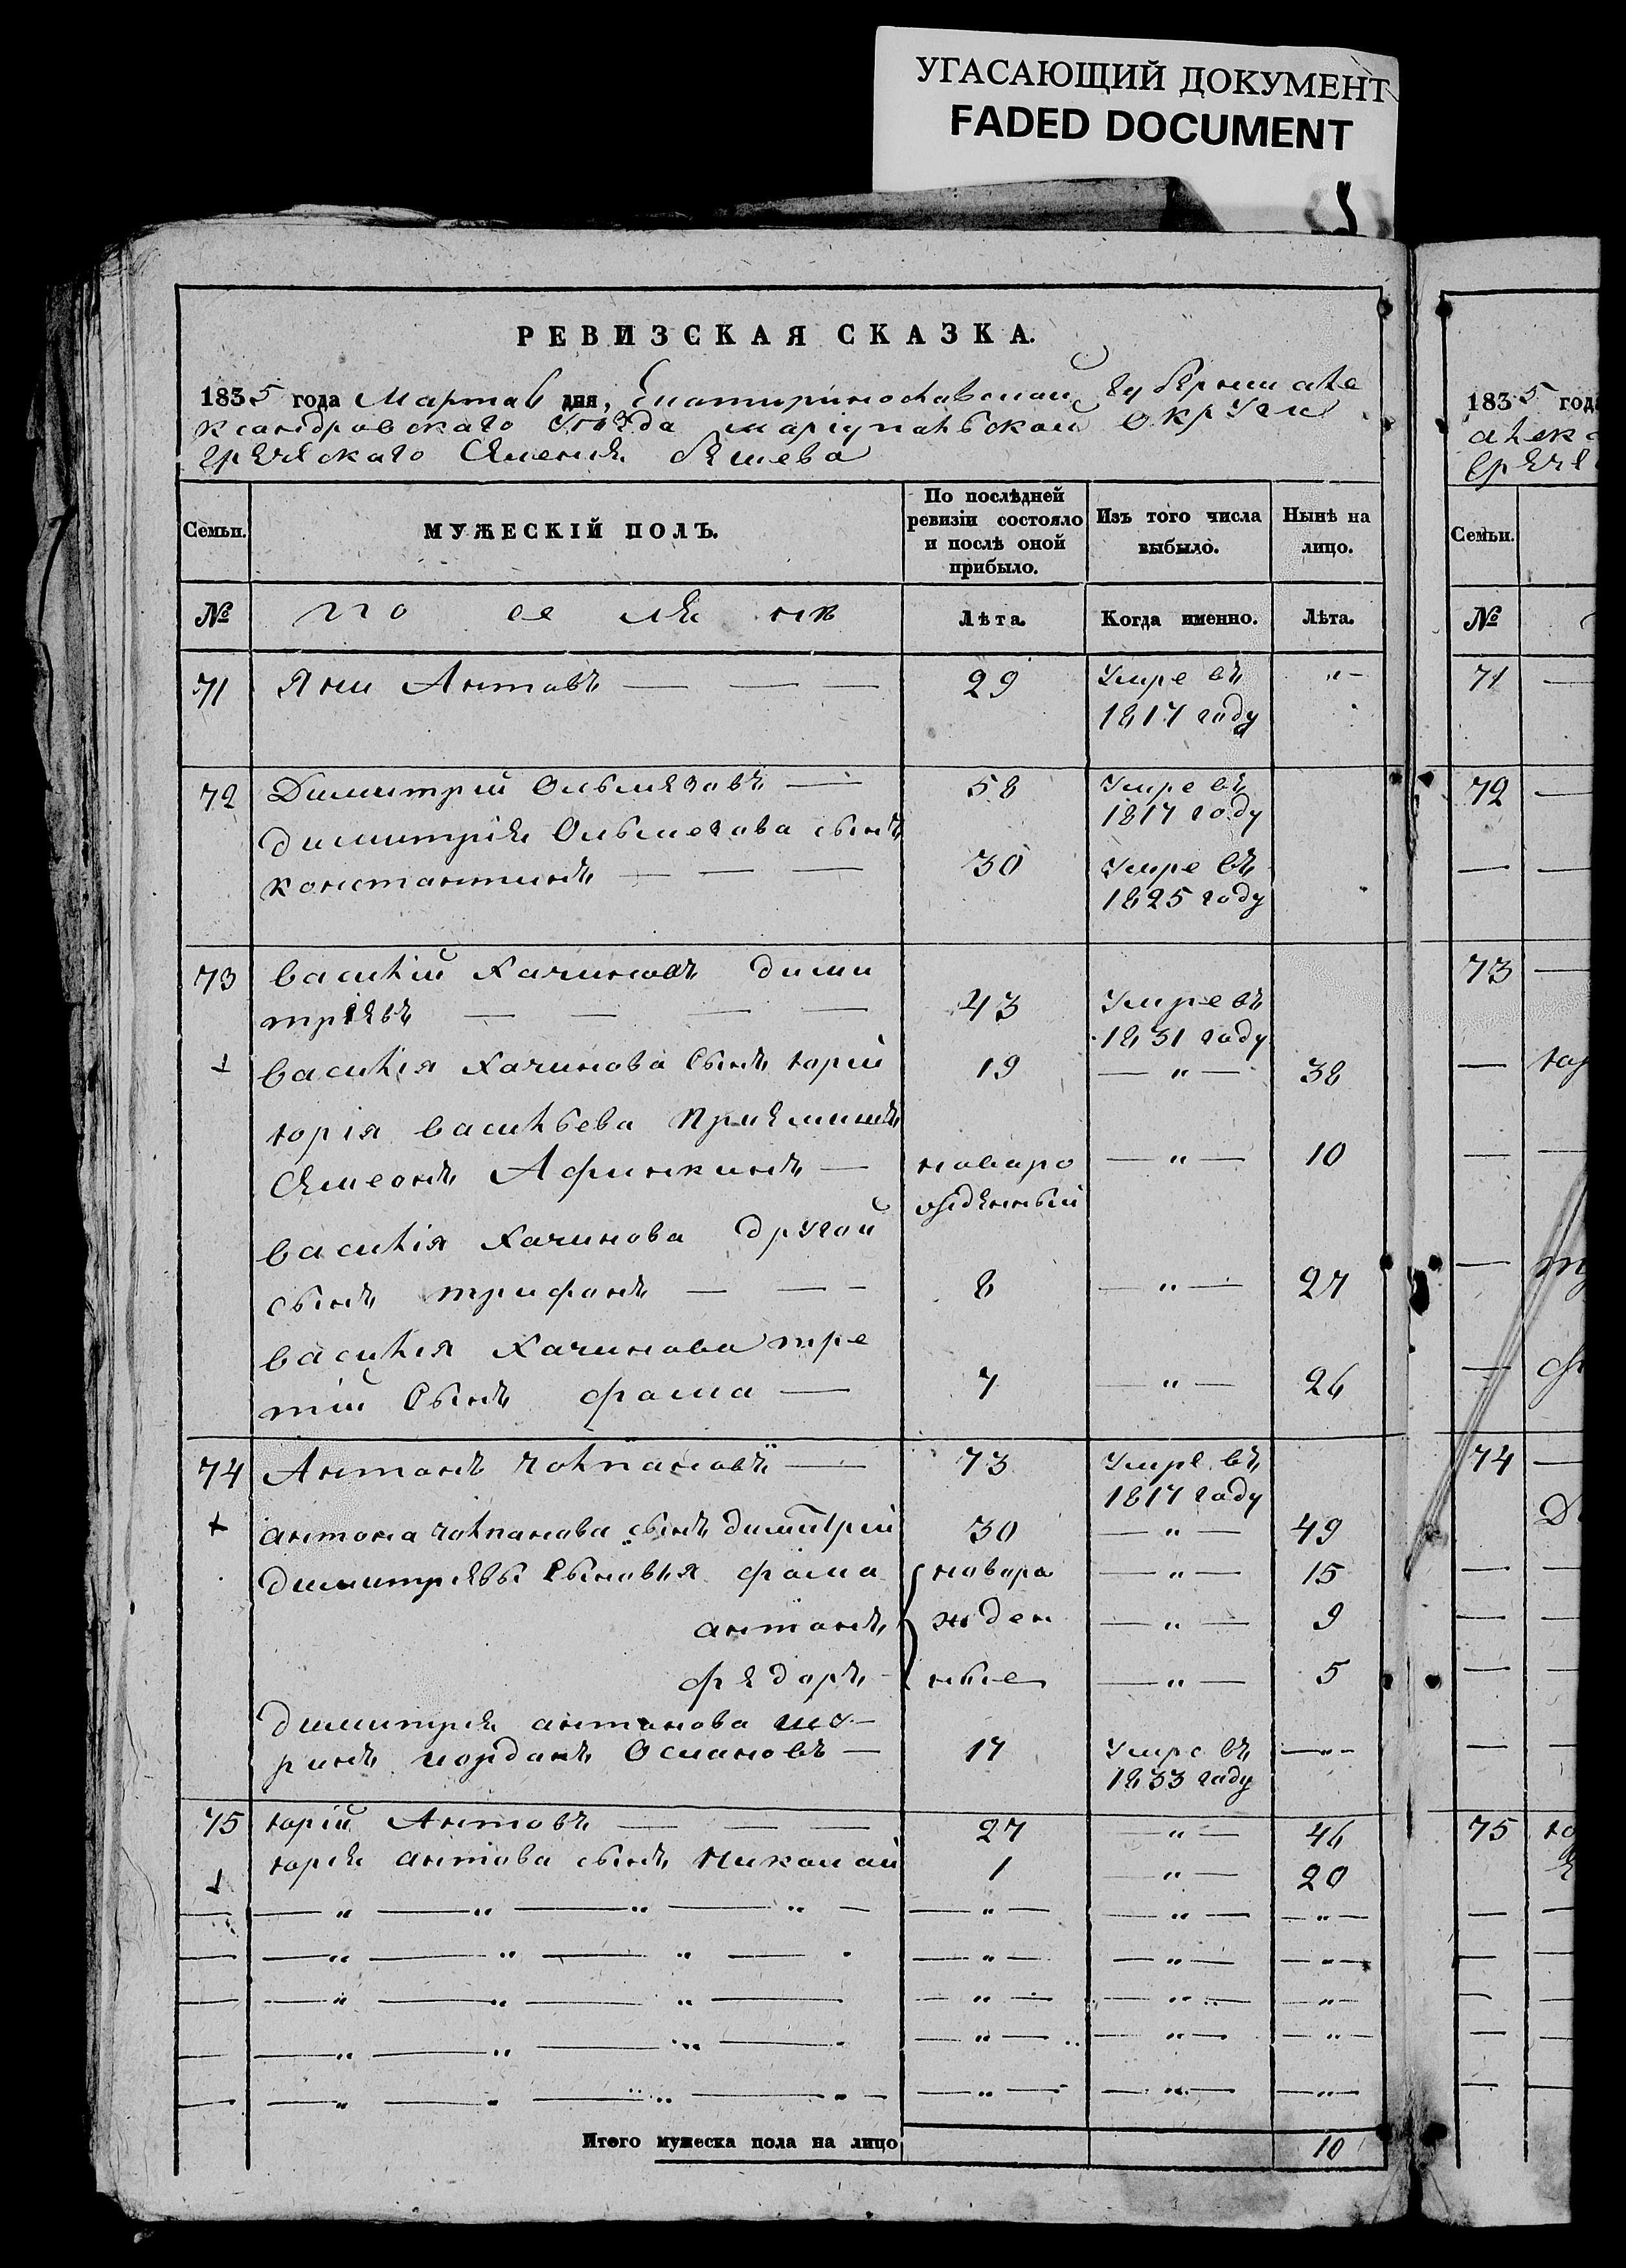 УГАСАЮЩИЙ ДОКУМЕНТ
FADED DOCUMENT
РЕВИЗСКАЯ СКАЗКА.
1835 года Марта 6 дня, Екатиринославской губернии але
ксандровского уезда мариупальской округи
греческаго селения бешева
Семьи.
МУЖЕСКІЙ ПОЛЪ.
По послѣдней ревизіи состояло и послѣ оной прибыло.
Изъ того числа выбыло.
Нынѣ на лицо.
№
Лѣта.
Когда именно.
Лѣта.
71 Яни Антовъ — — — 29 Умре въ "-
1817 году
72 Димитрий Ольмезовъ — 58 Умре въ
1817 году
димитрія Ольмезова сынъ
константинъ — — — 30 Умре въ
1825 году
73 василий Хачиновъ дими
тріевъ — — — — 43 Умре въ
1831 году
василія Хачинова сынъ юрій 19 — " — 38
юрія васильева приемишъ
Семеонъ Афинкинъ — новаро — " — 10
жденный
василія Хачинова другой
сынъ трифонъ — — — 8 — " — 27
василія Хачинова тре
тій сынъ фома — 7 — " — 26
74 Антонъ чолпановъ — 73 Умре въ
1817 году
антона чолпанова сынъ димитрій 30 — " — 49
димитріевы сыновья фома новоро — " — 15
антонъ жден — " — 9
федоръ ные — " — 5
димитрія антонова шу-
ринъ иорданъ Османовъ — 17 Умре въ — " —
1833 году
75 юрій Антовъ — — — 27 — " — 46
юрія антова сынъ Николай 1 — " — 20
Итого мужеска пола на лицо 10
1835 год
алекс
грече
Семьи.
№
71
72
73
74
75